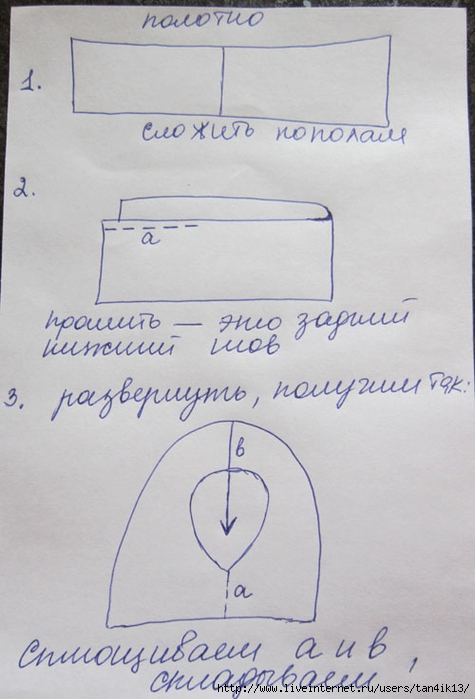 полотно
1.
сложить пополам
2.
а
прошить — это задний
нижний шов
3. развернуть, получим так:
в
а
Сплющиваем а и в,
складываем
http://www.liveinternet.ru/users/tan4ik13/